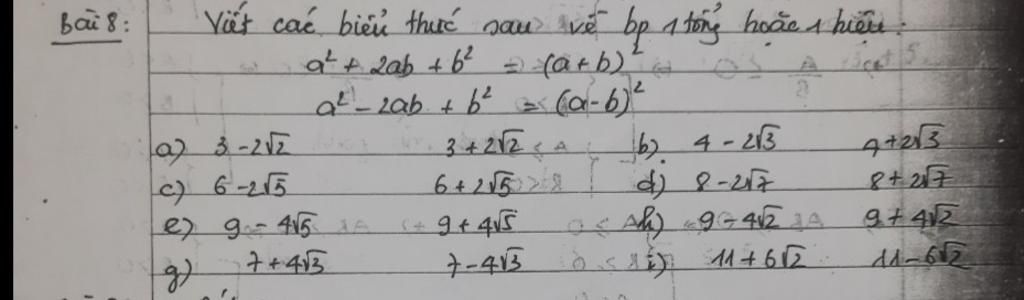 Bài 8: Viết các biểu thức sau về bp 1 tổng hoặc 1 hiệu:
a² + 2ab + b² = (a+b)²
a² - 2ab + b² = (a-b)²
a) 3 - 2√2 3 + 2√2 b) 4 - 2√3 4 + 2√3
c) 6 - 2√5 6 + 2√5 d) 8 - 2√7 8 + 2√7
e) 9 - 4√5 9 + 4√5 h) 9 - 4√2 9 + 4√2
g) 7 + 4√3 7 - 4√3 i) 11 + 6√2 11 - 6√2